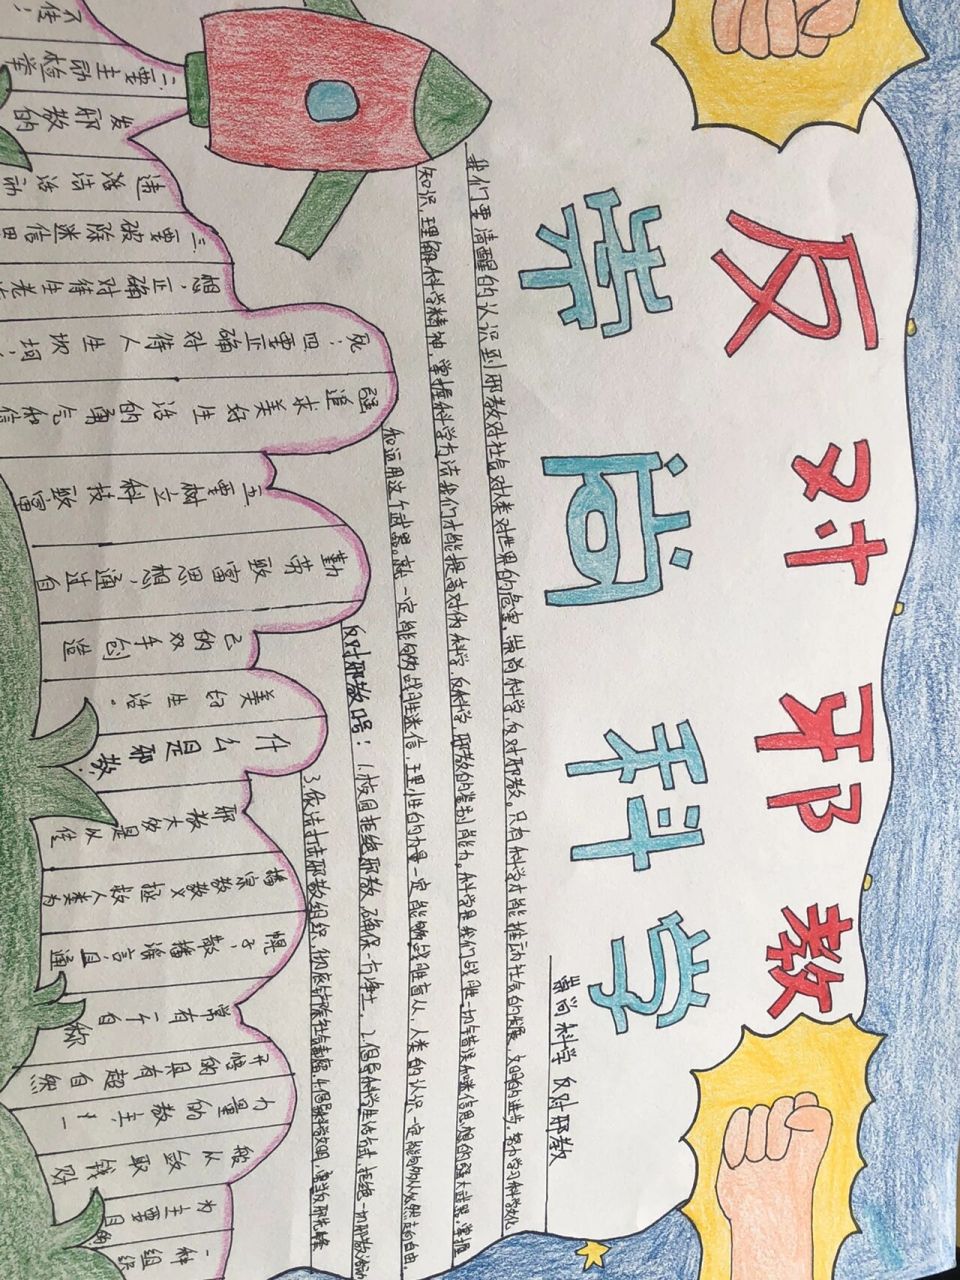 反对邪教
常尚科学
常尚科学 反对邪教
我们要清醒的认识到邪教对社会对人类对世界的危害,崇尚科学,反对邪教。只有科学才能推动社会的发展,文明的进步,努力学习科学文化
知识,理解科学精神,掌握科学方法我们才能提高对伪科学,反科学,邪教的鉴别能力。科学是我们战胜一切错误和迷信思想的强大武器,掌握
和运用这个武器。就一定能够战胜迷信,理性的力量一定能够战胜盲从,人类的认识一定能够从必然走向自由。
反对邪教口号:1.校园拒绝邪教,确保一方净土。2.倡导科学生活方式,拒绝一切邪教活动
3.依法打击邪教组织,彻底铲除社会毒瘤.4.倡导科学文明,要当好那先锋
二要主动检举
发邪教的
违法活动
三要破除迷信思
想,正确对待生老
死;四要正确对待人生坎坷;
追求美好生活的勇气和信
五要树立科技致富
勤劳致富思想,通过自
己的双手创造
美的生活。
什么是邪教?
邪教大多是以传
播宗教教义拯救人类为
幌子,散播谣言,且通
常有一个自称
开悟的具有超自然
力量的教主,一
般以敛取钱财
为主要目的
一种组织